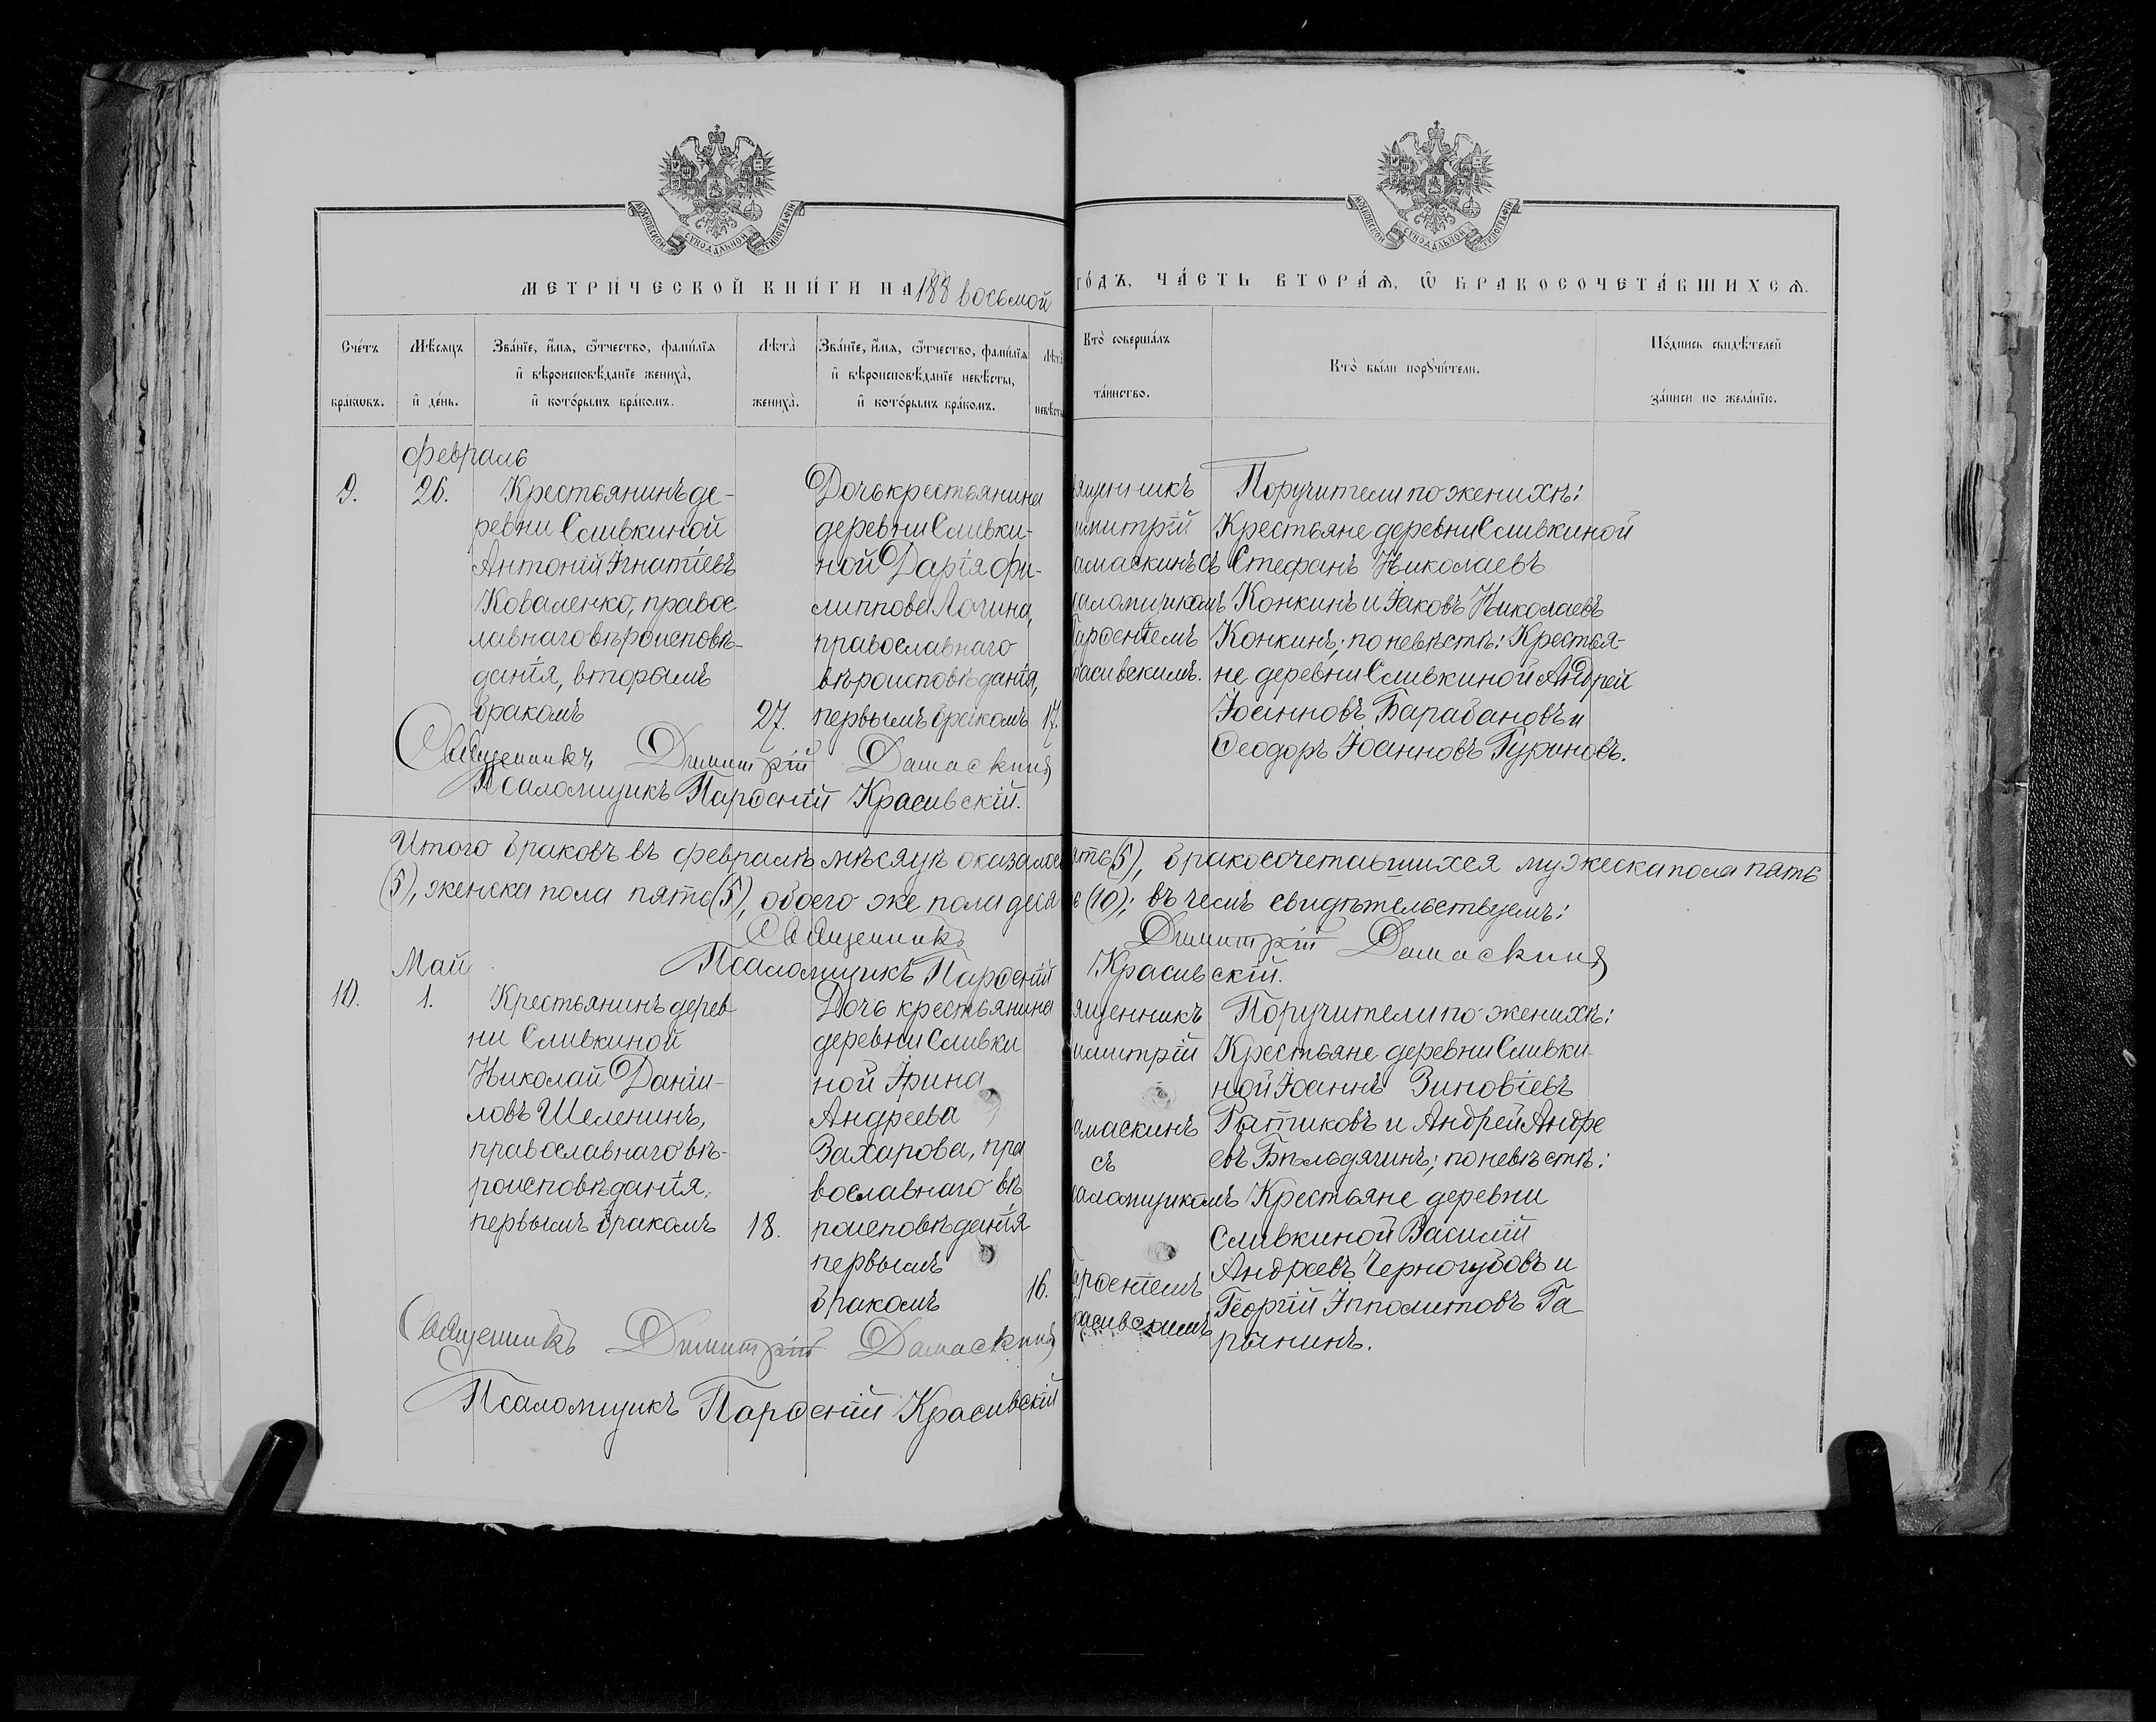 МОСКОВСКОЙ СѴНОДАЛЬНОЙ ТИПОГРАФІИ
МОСКОВСКОЙ СѴНОДАЛЬНОЙ ТИПОГРАФІИ
МЕТРИ́ЧЕСКОЙ КНИ́ГИ НА 1888 восьмой
ГО́ДЪ, ЧА́СТЬ ВТОРА́Ѧ, Ѽ БРАКОСОЧЕТА́ВШИХСѦ.
Сче́тъ бра́кѡвъ.
Мѣ́сяцъ и҆ де́нь.
Зва́нїе, и҆́мѧ, ѻ҆́тчество, фамилїѧ
и҆ вѣроисповѣ́данїе жениха̀,
и҆ кото́рымъ бра́комъ.
Лѣта̀ жениха̀.
Зва́нїе, и҆́мѧ, ѻ҆́тчество, фамилїѧ
и҆ вѣроисповѣ́данїе невѣ́сты,
и҆ кото́рымъ бра́комъ.
Лѣта̀ невѣсты
Кто̀ соверша́лъ
та́инство.
Кто̀ бы́ли порꙋчи́тели.
По́дпись свидѣ́телей
за́писи по жела́нїю.
Февраль
9.
26.
Крестьянинъ де-
ревни Сливкиной
Антоній Игнатіевъ
Коваленко, правос
лавнаго вѣроисповѣ-
данія, вторымъ
бракомъ
27.
Дочь крестьянина
деревни Сливки-
ной Дарія Фи-
липпова Логина,
православнаго
вѣроисповѣданія,
первымъ бракомъ
17.
ященникъ
имитрій
амаскинъ съ
саломщикомъ
Парѳеніемъ
расивскимъ.
Поручители по женихѣ:
Крестьяне деревни Сливкиной
Стефанъ Николаевъ
Конкинъ и Іаковъ Николаевъ
Конкинъ; по невѣстѣ: Крестья-
не деревни Сливкиной Андрей
Іоанновъ Барабановъ и
Ѳеодоръ Іоанновъ Гуриновъ.
Священникъ Димитрій Дамаскинъ
Псаломщикъ Парѳеній Красивскій.
Итого браковъ въ февралѣ мѣсяцѣ оказалос ять (5), бракосочетавшихся мужеска пола пять
(5), женска пола пять (5), обоего же пола деся ь (10); въ чемъ свидѣтельствуемъ:
Священникъ Димитрій Дамаскинъ
Псаломщикъ Парѳеній Красивскій.
Май
10.
1.
Крестьянинъ дерев
ни Сливкиной
Николай Даніи-
ловъ Шеленинъ,
православнаго вѣ-
роисповѣданія,
первымъ бракомъ
18.
Дочь крестьянина
деревни Сливки
ной Ирина
Андреева
Захарова, пра
вославнаго вѣ
роисповѣданія
первымъ
бракомъ
16.
ященникъ
имитрій
амаскинъ
съ
саломщикомъ
арѳеніемъ
расивскимъ
Поручители по женихѣ:
Крестьяне деревни Сливки-
ной Іоаннъ Зиновіевъ
и Андрей Андре
евъ Бѣльдягинъ; по невѣстѣ:
Крестьяне деревни
Сливкиной Василій
Андреевъ Черногубовъ и
Георгій Ипполитовъ Га
рынинъ.
Священникъ Димитрій Дамаскинъ
Псаломщикъ Парѳеній Красивскій